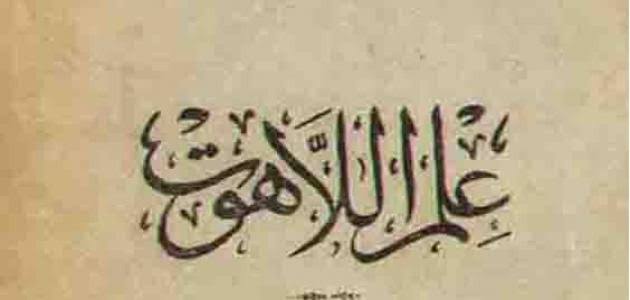 عِلم اللَّاهوت